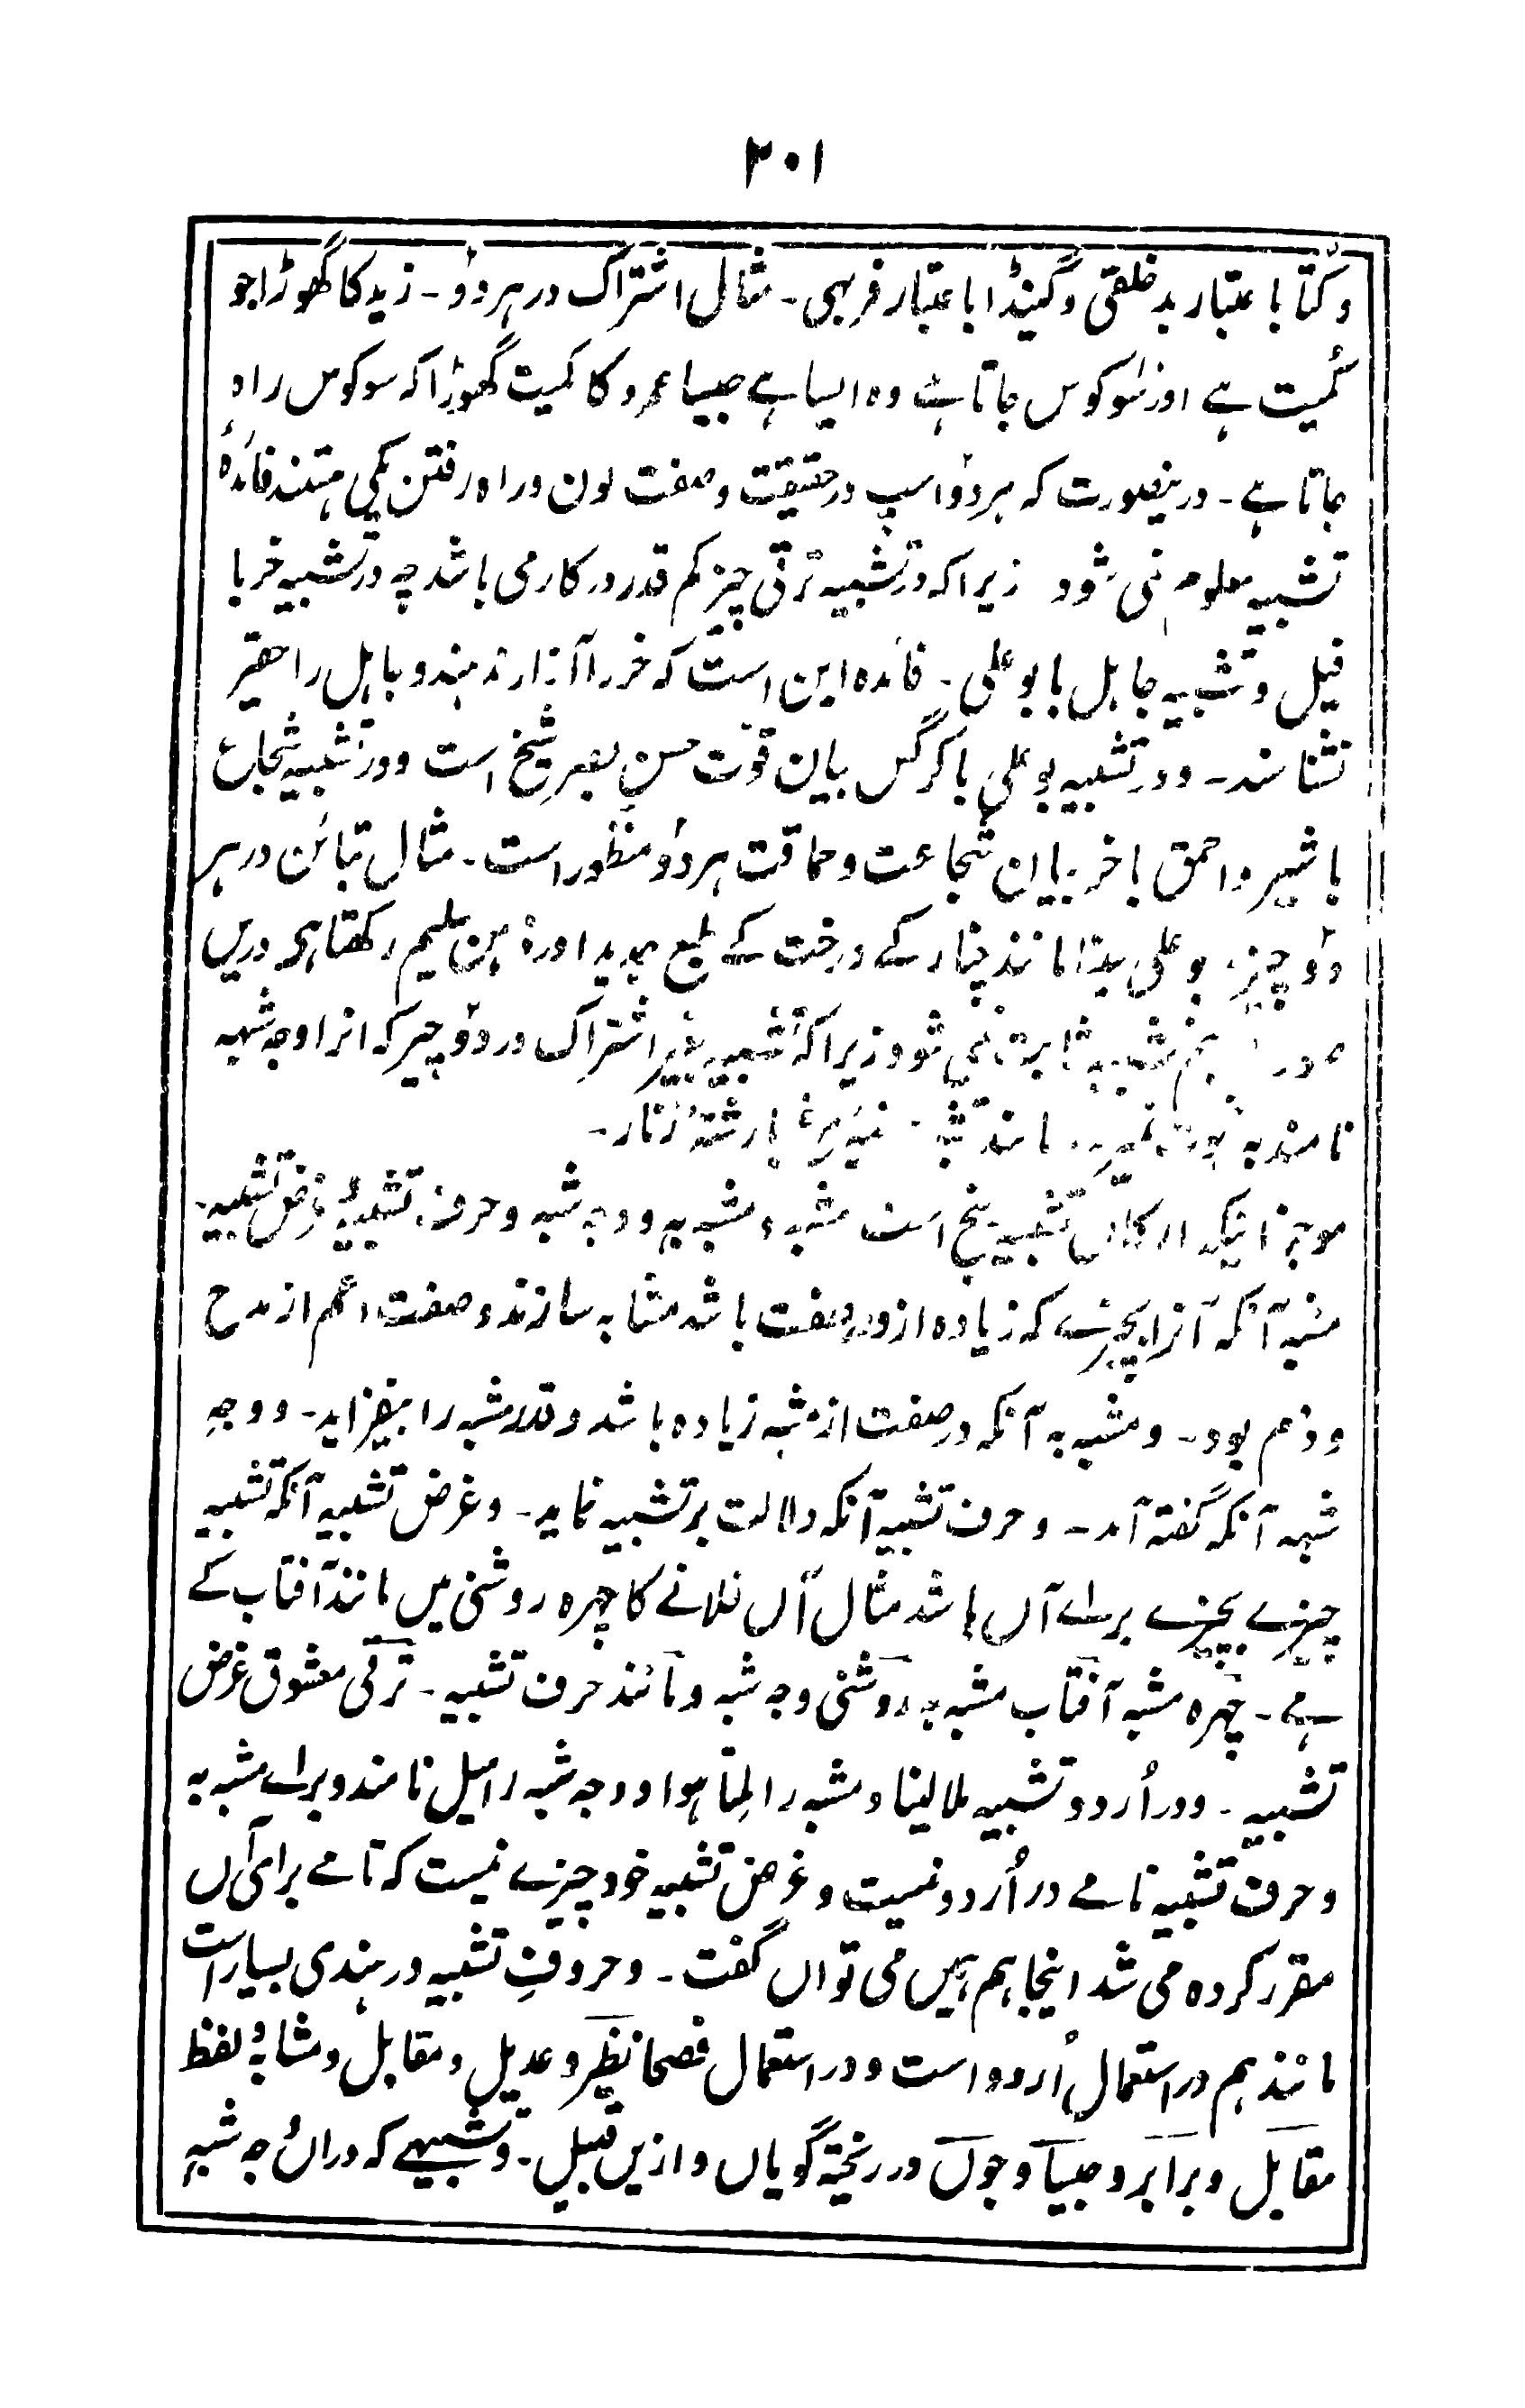 ۳۰۱
و کتا باعتبار بد خلقی و گینڈا باعتبار فربہی۔ مثال اشتراک در ہر دو۔ زید کا گھوڑا جو
کُمیت ہے اور سَو کوس جاتا ہے وہ ایسا ہے جیسا عمرو کا کمیت گھوڑا کہ سو کوس راہ
جاتا ہے۔ درینصورت کہ ہر دو اسپ در حقیقت و صفت لون و راہ رفتن یکی ہستند فائدۂ
تشبیہ معلوم نمی شود زیرا کہ در تشبیہ ترقی چیز کم قدر درکار می باشد چہ در تشبیہ خر با
فیل و تشبیہ جاہل با بو علی۔ فائدہ این است کہ خر را آزار ندہند و جاہل را حقیر
نشناسند۔ و در تشبیہ بو علی با کرگس بیان قوّت حسِ بصرِ شیخ است و در تشبیہ شجاع
با شیر و احمق با خر بیان شجاعت و حماقت ہر دو منظور است۔ مثال تبائن در ہر
دو چیز، بو علی سینا مانند چنار کے درخت کے طبع جدید اور ذہن سلیم رکھتا ہے دریں
ہم تشبیہ ثابت نمی شود زیرا کہ تشبیہ بغیر اشتراک در دو چیز کہ انرا وجہ شبہ
نامند مانند بارشتۂ زنار۔
موجز اینکہ ارکان تشبیہ پنج است مشبہ و مشبہ بہ و وجہ شبہ و حرف تشبیہ و غرض تشبیہ۔
مشبہ آنکہ آنرا بچیزے کہ زیادہ ازو در صفت باشد مشابہ سازند و صفت اعم از مدح
و ذم بود۔ و مشبہ بہ آنکہ در صفت از مشبہ زیادہ باشد و قدر مشبہ را بیفزاید۔ و وجہِ
شبہ آنکہ گفتہ آمد۔ و حرف تشبیہ آنکہ دلالت بر تشبیہ نماید۔ و غرض تشبیہ آنکہ تشبیہ
چیزے بچیزے براے آں باشد مثال آں فلانے کا چہرہ روشنی میں مانند آفتاب کے
ہے۔ چہرہ مشبہ آفتاب مشبہ بہ روشنی وجہ شبہ و مانند حرف تشبیہ۔ ترقی معشوق غرض
تشبیہ۔ و در اُردو تشبیہ ملالینا و مشبہ را لِمتا ہوا و وجہ شبہ را میل نامند و براے مشبہ بہ
و حرف تشبیہ نامے در اُردو نیست و غرض تشبیہ خود چیزے نیست کہ نامے برای آں
مقرر کردہ می شد اینجا ہم ہمیں می تواں گفت۔ و حروفِ تشبیہ در ہندی بسیار است
مانند ہم در استعمال اُردو است و در استعمال فصحا نظیر و عدیل و مقابل و مشابہ و لفظ
مقابل و برابر و جیسا و جوں در ریختہ گویاں و ازیں قبیل۔ و تشبیہے کہ دراں وجہ شبہ